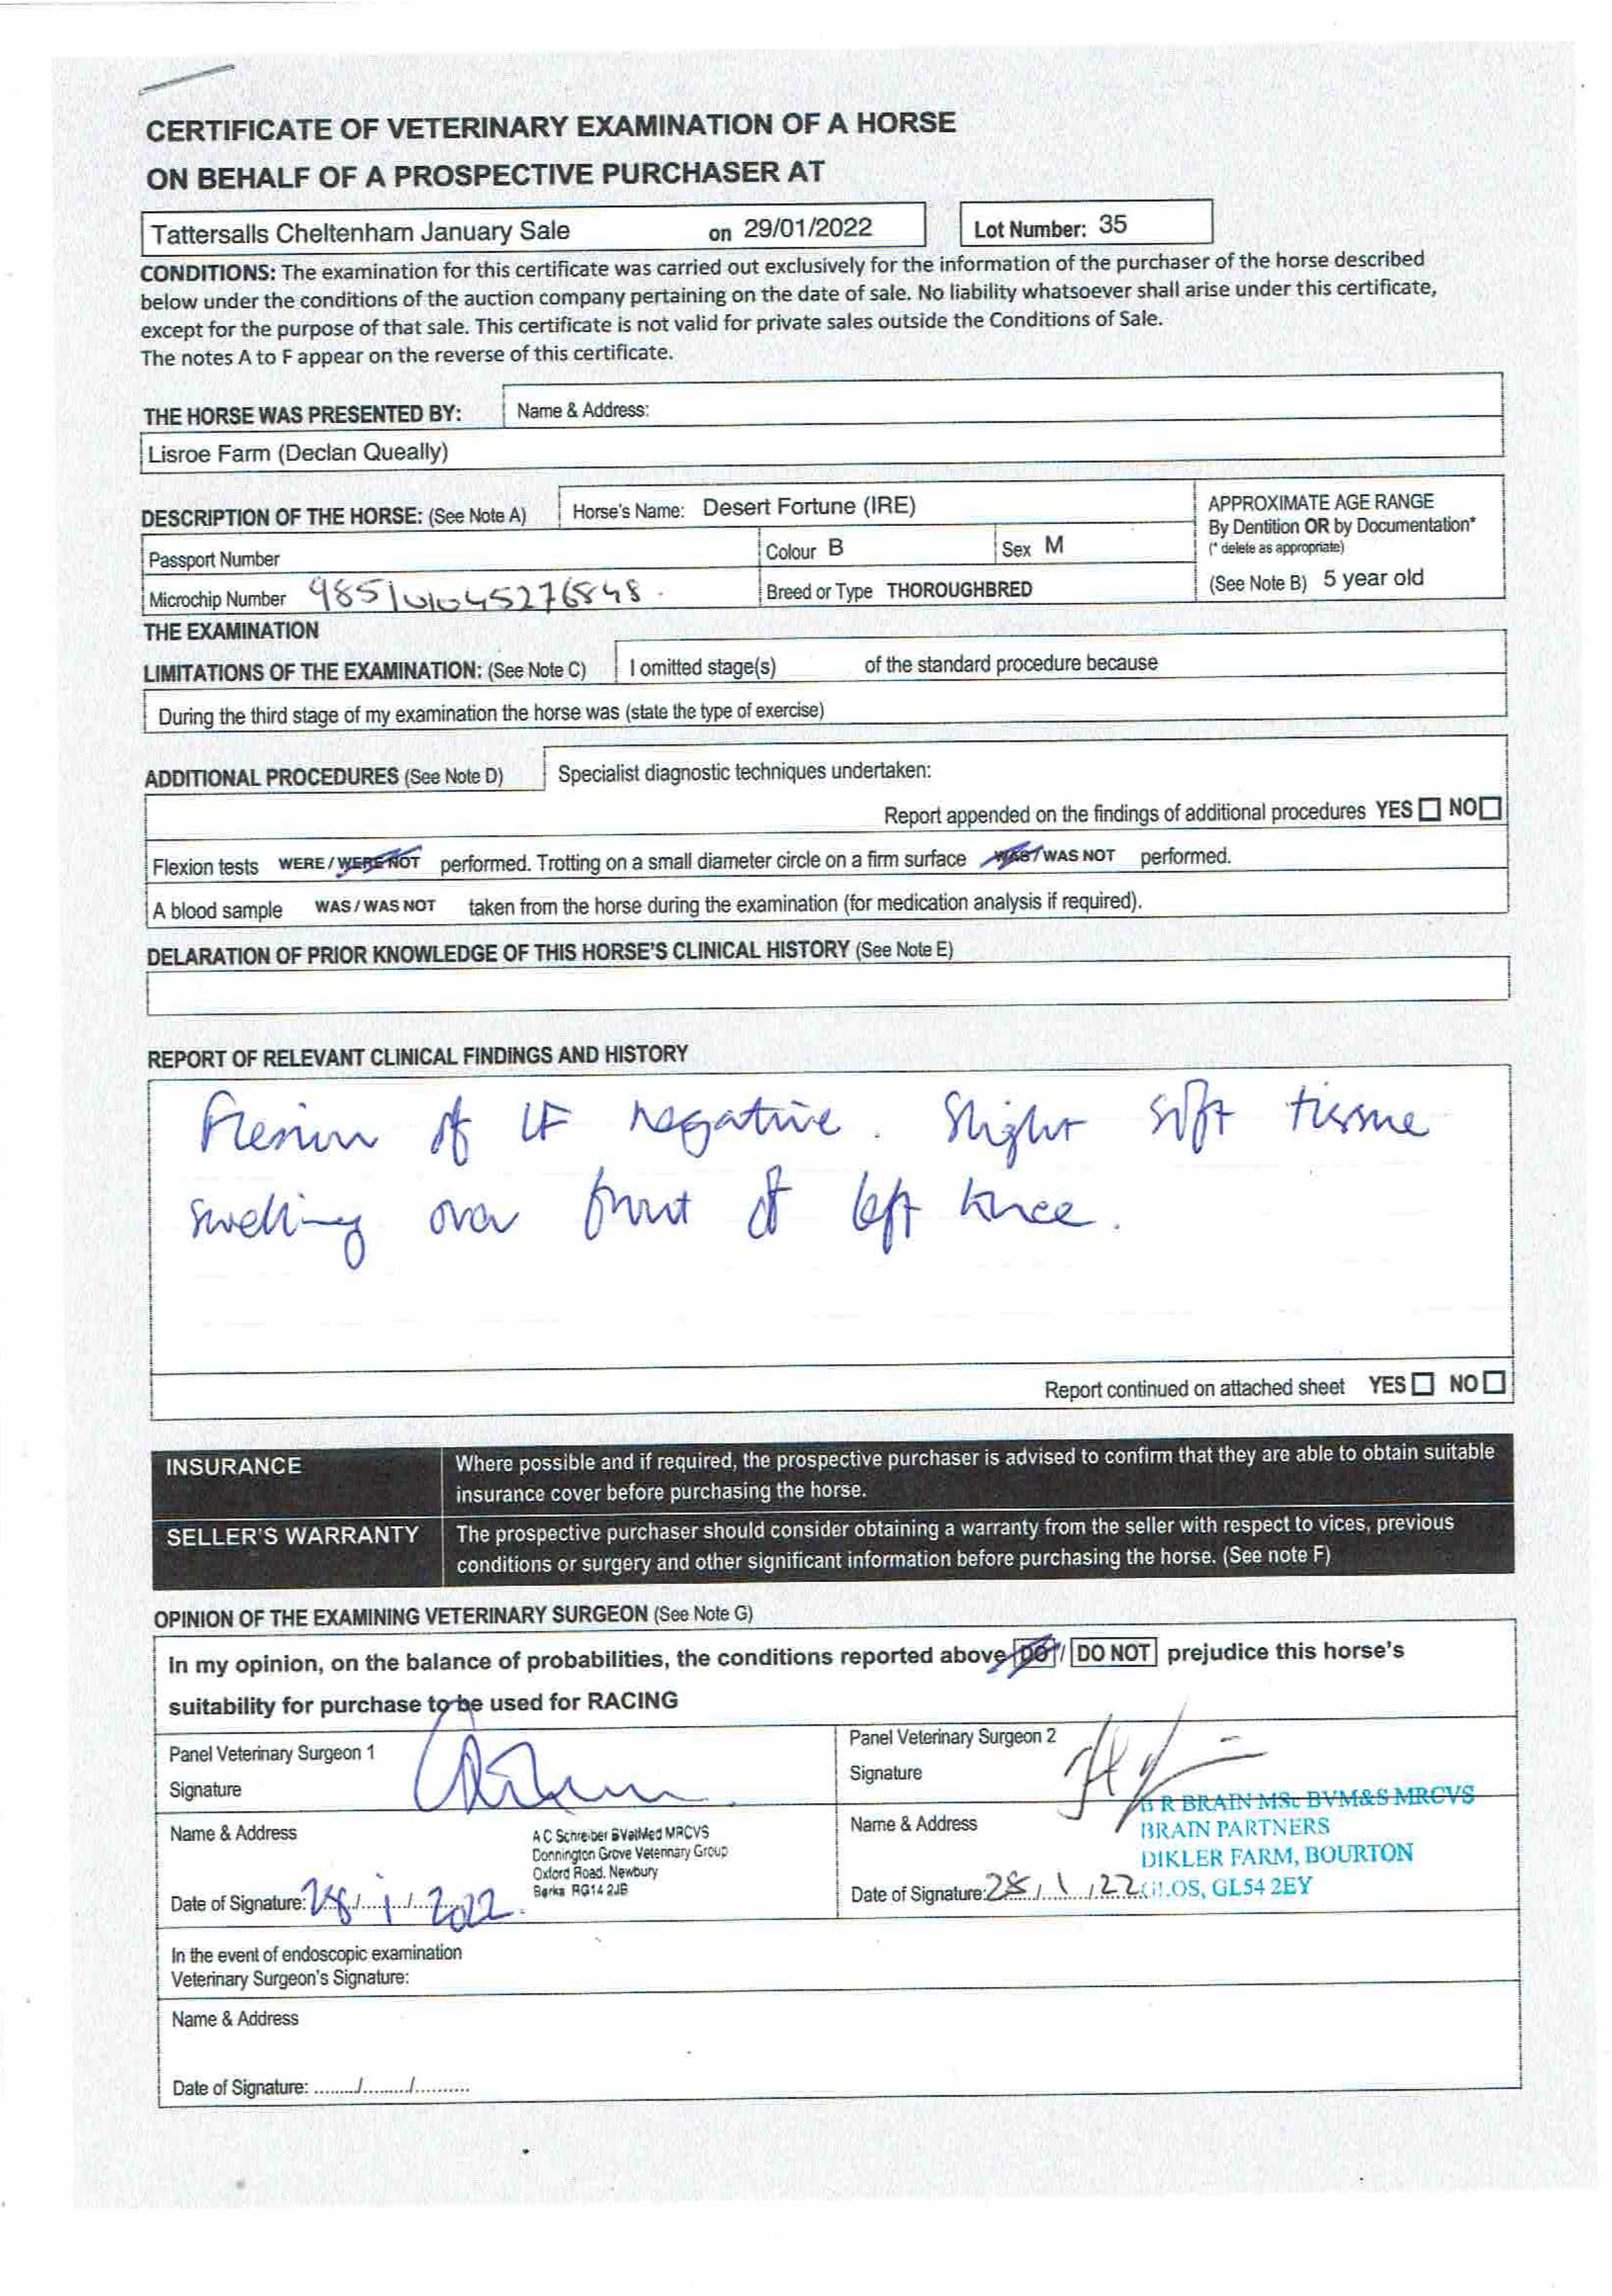 CERTIFICATE OF VETERINARY EXAMINATION OF A HORSE
ON BEHALF OF A PROSPECTIVE PURCHASER AT
Tattersalls Cheltenham January Sale on 29/01/2022 Lot Number: 35
CONDITIONS: The examination for this certificate was carried out exclusively for the information of the purchaser of the horse described
below under the conditions of the auction company pertaining on the date of sale. No liability whatsoever shall arise under this certificate,
except for the purpose of that sale. This certificate is not valid for private sales outside the Conditions of Sale.
The notes A to F appear on the reverse of this certificate.
THE HORSE WAS PRESENTED BY: Name & Address:
Lisroe Farm (Declan Queally)
DESCRIPTION OF THE HORSE: (See Note A) Horse's Name: Desert Fortune (IRE)
APPROXIMATE AGE RANGE
By Dentition OR by Documentation*
(* delete as appropriate)
(See Note B) 5 year old
Passport Number Colour B Sex M
Microchip Number 985101045276848 Breed or Type THOROUGHBRED
THE EXAMINATION
LIMITATIONS OF THE EXAMINATION: (See Note C) I omitted stage(s) of the standard procedure because
During the third stage of my examination the horse was (state the type of exercise)
ADDITIONAL PROCEDURES (See Note D) Specialist diagnostic techniques undertaken:
Report appended on the findings of additional procedures YES NO
Flexion tests WERE / WERE NOT performed. Trotting on a small diameter circle on a firm surface WAS / WAS NOT performed.
A blood sample WAS / WAS NOT taken from the horse during the examination (for medication analysis if required).
DELARATION OF PRIOR KNOWLEDGE OF THIS HORSE'S CLINICAL HISTORY (See Note E)
REPORT OF RELEVANT CLINICAL FINDINGS AND HISTORY
Flexion of LF negative. Slight soft tissue
swelling over front of left knee.
Report continued on attached sheet YES NO
INSURANCE Where possible and if required, the prospective purchaser is advised to confirm that they are able to obtain suitable
insurance cover before purchasing the horse.
SELLER'S WARRANTY The prospective purchaser should consider obtaining a warranty from the seller with respect to vices, previous
conditions or surgery and other significant information before purchasing the horse. (See note F)
OPINION OF THE EXAMINING VETERINARY SURGEON (See Note G)
In my opinion, on the balance of probabilities, the conditions reported above DO / DO NOT prejudice this horse's
suitability for purchase to be used for RACING
Panel Veterinary Surgeon 1
Signature
Name & Address
A C Schreiber BVetMed MRCVS
Donnington Grove Veterinary Group
Oxford Road, Newbury
Berks RG14 2JB
Date of Signature: 28/1/2022.
Panel Veterinary Surgeon 2
Signature
Name & Address
B R BRAIN MSc BVM&S MRCVS
BRAIN PARTNERS
DIKLER FARM, BOURTON
GLOS, GL54 2EY
Date of Signature: 28/1/22
In the event of endoscopic examination
Veterinary Surgeon's Signature:
Name & Address
Date of Signature: ......../........./..........